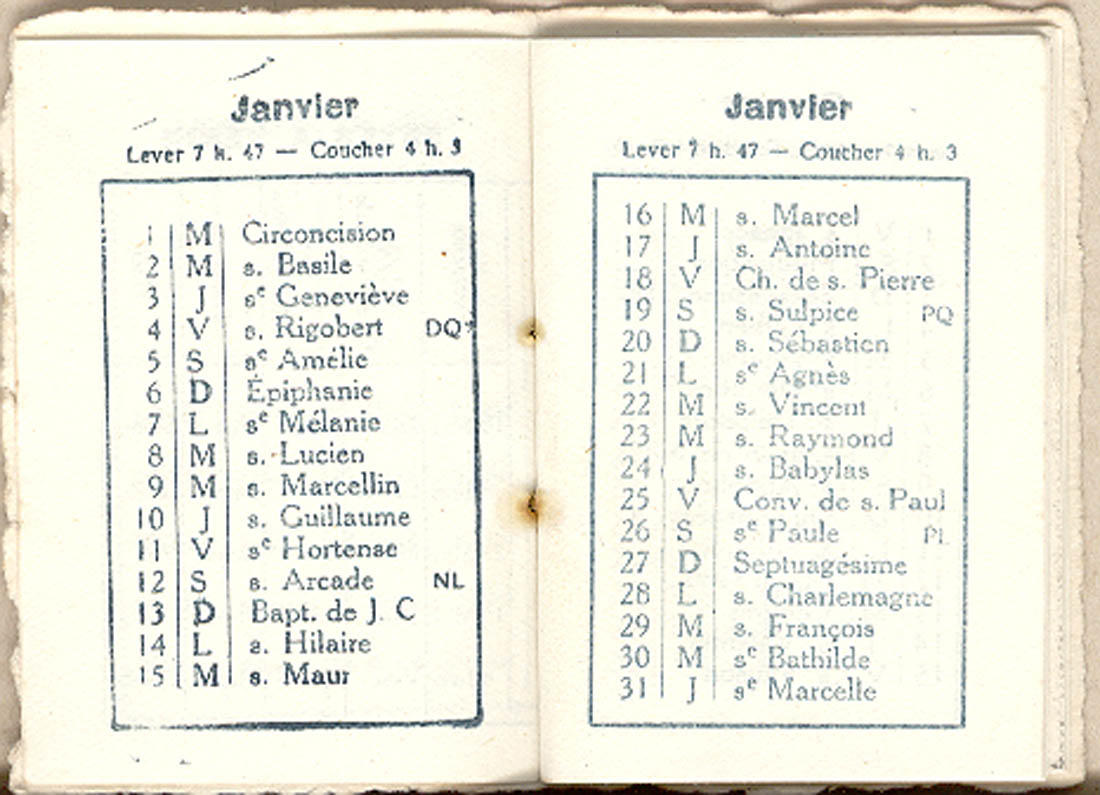 Janvier
Lever 7 h. 47 — Coucher 4 h. 3
1 M Circoncision
2 M s. Basile
3 J se Geneviève
4 V s. Rigobert DQ
5 S se Amélie
6 D Épiphanie
7 L se Mélanie
8 M s. Lucien
9 M s. Marcellin
10 J s. Guillaume
11 V se Hortense
12 S s. Arcade NL
13 D Bapt. de J. C
14 L s. Hilaire
15 M s. Maur
Janvier
Lever 7 h. 47 — Coucher 4 h. 3
16 M s. Marcel
17 J s. Antoine
18 V Ch. de s. Pierre
19 S s. Sulpice PQ
20 D s. Sébastien
21 L se Agnès
22 M s. Vincent
23 M s. Raymond
24 J s. Babylas
25 V Conv. de s. Paul
26 S se Paule PL
27 D Septuagésime
28 L s. Charlemagne
29 M s. François
30 M se Bathilde
31 J se Marcelle